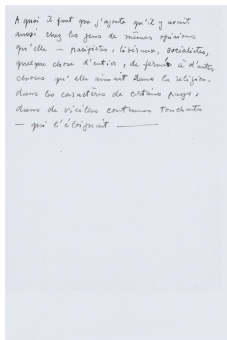 A quoi il faut que j'ajoute qu'il y avait
aussi chez les gens de mêmes opinions
qu'elle — pacifistes, libéraux, socialistes,
quelque chose d'entier, de fermé à d'autres
choses qu'elle aimait dans la religion,
dans les caractères de certains pays,
dans de vieilles coutumes touchantes
— qui l'éloignait —